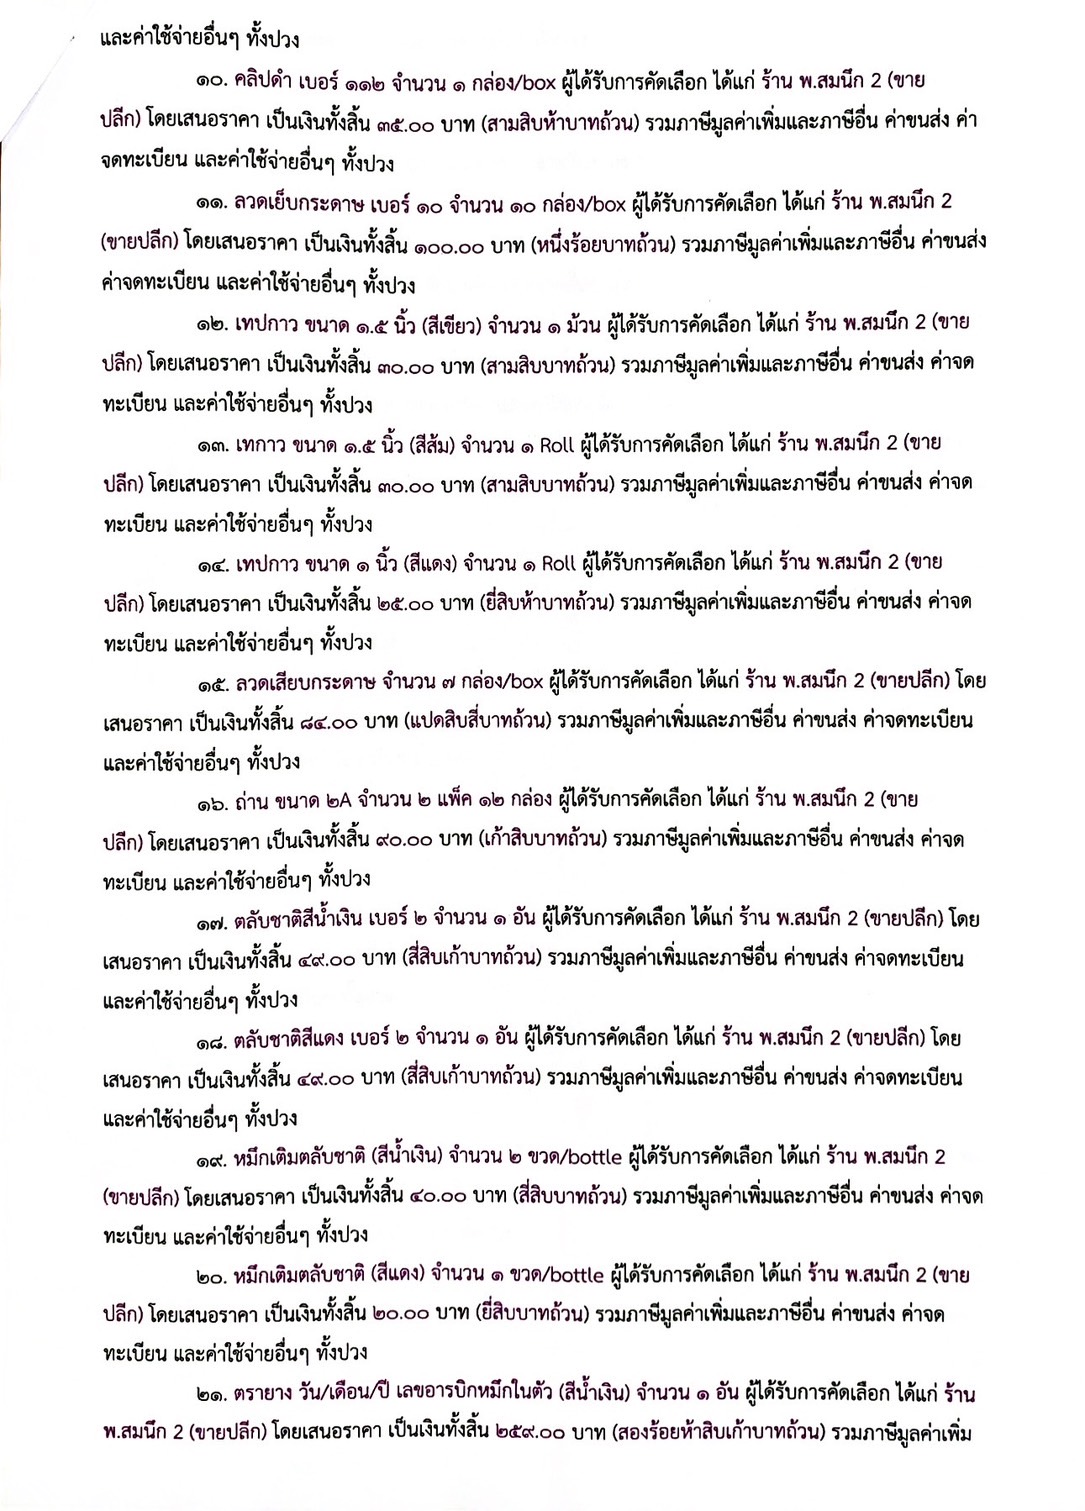 และค่าใช้จ่ายอื่นๆ ทั้งปวง
๑๐. คลิปดำ เบอร์ ๑๑๒ จำนวน ๑ กล่อง/box ผู้ได้รับการคัดเลือก ได้แก่ ร้าน พ.สมนึก 2 (ขาย
ปลีก) โดยเสนอราคา เป็นเงินทั้งสิ้น ๓๕.๐๐ บาท (สามสิบห้าบาทถ้วน) รวมภาษีมูลค่าเพิ่มและภาษีอื่น ค่าขนส่ง ค่า
จดทะเบียน และค่าใช้จ่ายอื่นๆ ทั้งปวง
๑๑. ลวดเย็บกระดาษ เบอร์ ๑๐ จำนวน ๑๐ กล่อง/box ผู้ได้รับการคัดเลือก ได้แก่ ร้าน พ.สมนึก 2
(ขายปลีก) โดยเสนอราคา เป็นเงินทั้งสิ้น ๑๐๐.๐๐ บาท (หนึ่งร้อยบาทถ้วน) รวมภาษีมูลค่าเพิ่มและภาษีอื่น ค่าขนส่ง
ค่าจดทะเบียน และค่าใช้จ่ายอื่นๆ ทั้งปวง
๑๒. เทปกาว ขนาด ๑.๕ นิ้ว (สีเขียว) จำนวน ๑ ม้วน ผู้ได้รับการคัดเลือก ได้แก่ ร้าน พ.สมนึก 2 (ขาย
ปลีก) โดยเสนอราคา เป็นเงินทั้งสิ้น ๓๐.๐๐ บาท (สามสิบบาทถ้วน) รวมภาษีมูลค่าเพิ่มและภาษีอื่น ค่าขนส่ง ค่าจด
ทะเบียน และค่าใช้จ่ายอื่นๆ ทั้งปวง
๑๓. เทกาว ขนาด ๑.๕ นิ้ว (สีส้ม) จำนวน ๑ Roll ผู้ได้รับการคัดเลือก ได้แก่ ร้าน พ.สมนึก 2 (ขาย
ปลีก) โดยเสนอราคา เป็นเงินทั้งสิ้น ๓๐.๐๐ บาท (สามสิบบาทถ้วน) รวมภาษีมูลค่าเพิ่มและภาษีอื่น ค่าขนส่ง ค่าจด
ทะเบียน และค่าใช้จ่ายอื่นๆ ทั้งปวง
๑๔. เทปกาว ขนาด ๑ นิ้ว (สีแดง) จำนวน ๑ Roll ผู้ได้รับการคัดเลือก ได้แก่ ร้าน พ.สมนึก 2 (ขาย
ปลีก) โดยเสนอราคา เป็นเงินทั้งสิ้น ๒๕.๐๐ บาท (ยี่สิบห้าบาทถ้วน) รวมภาษีมูลค่าเพิ่มและภาษีอื่น ค่าขนส่ง ค่าจด
ทะเบียน และค่าใช้จ่ายอื่นๆ ทั้งปวง
๑๕. ลวดเสียบกระดาษ จำนวน ๗ กล่อง/box ผู้ได้รับการคัดเลือก ได้แก่ ร้าน พ.สมนึก 2 (ขายปลีก) โดย
เสนอราคา เป็นเงินทั้งสิ้น ๘๔.๐๐ บาท (แปดสิบสี่บาทถ้วน) รวมภาษีมูลค่าเพิ่มและภาษีอื่น ค่าขนส่ง ค่าจดทะเบียน
และค่าใช้จ่ายอื่นๆ ทั้งปวง
๑๖. ถ่าน ขนาด ๒A จำนวน ๒ แพ็ค ๑๒ กล่อง ผู้ได้รับการคัดเลือก ได้แก่ ร้าน พ.สมนึก 2 (ขาย
ปลีก) โดยเสนอราคา เป็นเงินทั้งสิ้น ๙๐.๐๐ บาท (เก้าสิบบาทถ้วน) รวมภาษีมูลค่าเพิ่มและภาษีอื่น ค่าขนส่ง ค่าจด
ทะเบียน และค่าใช้จ่ายอื่นๆ ทั้งปวง
๑๗. ตลับชาติสีน้ำเงิน เบอร์ ๒ จำนวน ๑ อัน ผู้ได้รับการคัดเลือก ได้แก่ ร้าน พ.สมนึก 2 (ขายปลีก) โดย
เสนอราคา เป็นเงินทั้งสิ้น ๔๙.๐๐ บาท (สี่สิบเก้าบาทถ้วน) รวมภาษีมูลค่าเพิ่มและภาษีอื่น ค่าขนส่ง ค่าจดทะเบียน
และค่าใช้จ่ายอื่นๆ ทั้งปวง
๑๘. ตลับชาติสีแดง เบอร์ ๒ จำนวน ๑ อัน ผู้ได้รับการคัดเลือก ได้แก่ ร้าน พ.สมนึก 2 (ขายปลีก) โดย
เสนอราคา เป็นเงินทั้งสิ้น ๔๙.๐๐ บาท (สี่สิบเก้าบาทถ้วน) รวมภาษีมูลค่าเพิ่มและภาษีอื่น ค่าขนส่ง ค่าจดทะเบียน
และค่าใช้จ่ายอื่นๆ ทั้งปวง
๑๙. หมึกเติมตลับชาติ (สีน้ำเงิน) จำนวน ๒ ขวด/bottle ผู้ได้รับการคัดเลือก ได้แก่ ร้าน พ.สมนึก 2
(ขายปลีก) โดยเสนอราคา เป็นเงินทั้งสิ้น ๔๐.๐๐ บาท (สี่สิบบาทถ้วน) รวมภาษีมูลค่าเพิ่มและภาษีอื่น ค่าขนส่ง ค่าจด
ทะเบียน และค่าใช้จ่ายอื่นๆ ทั้งปวง
๒๐. หมึกเติมตลับชาติ (สีแดง) จำนวน ๑ ขวด/bottle ผู้ได้รับการคัดเลือก ได้แก่ ร้าน พ.สมนึก 2 (ขาย
ปลีก) โดยเสนอราคา เป็นเงินทั้งสิ้น ๒๐.๐๐ บาท (ยี่สิบบาทถ้วน) รวมภาษีมูลค่าเพิ่มและภาษีอื่น ค่าขนส่ง ค่าจด
ทะเบียน และค่าใช้จ่ายอื่นๆ ทั้งปวง
๒๑. ตรายาง วัน/เดือน/ปี เลขอารบิกหมึกในตัว (สีน้ำเงิน) จำนวน ๑ อัน ผู้ได้รับการคัดเลือก ได้แก่ ร้าน
พ.สมนึก 2 (ขายปลีก) โดยเสนอราคา เป็นเงินทั้งสิ้น ๒๕๙.๐๐ บาท (สองร้อยห้าสิบเก้าบาทถ้วน) รวมภาษีมูลค่าเพิ่ม